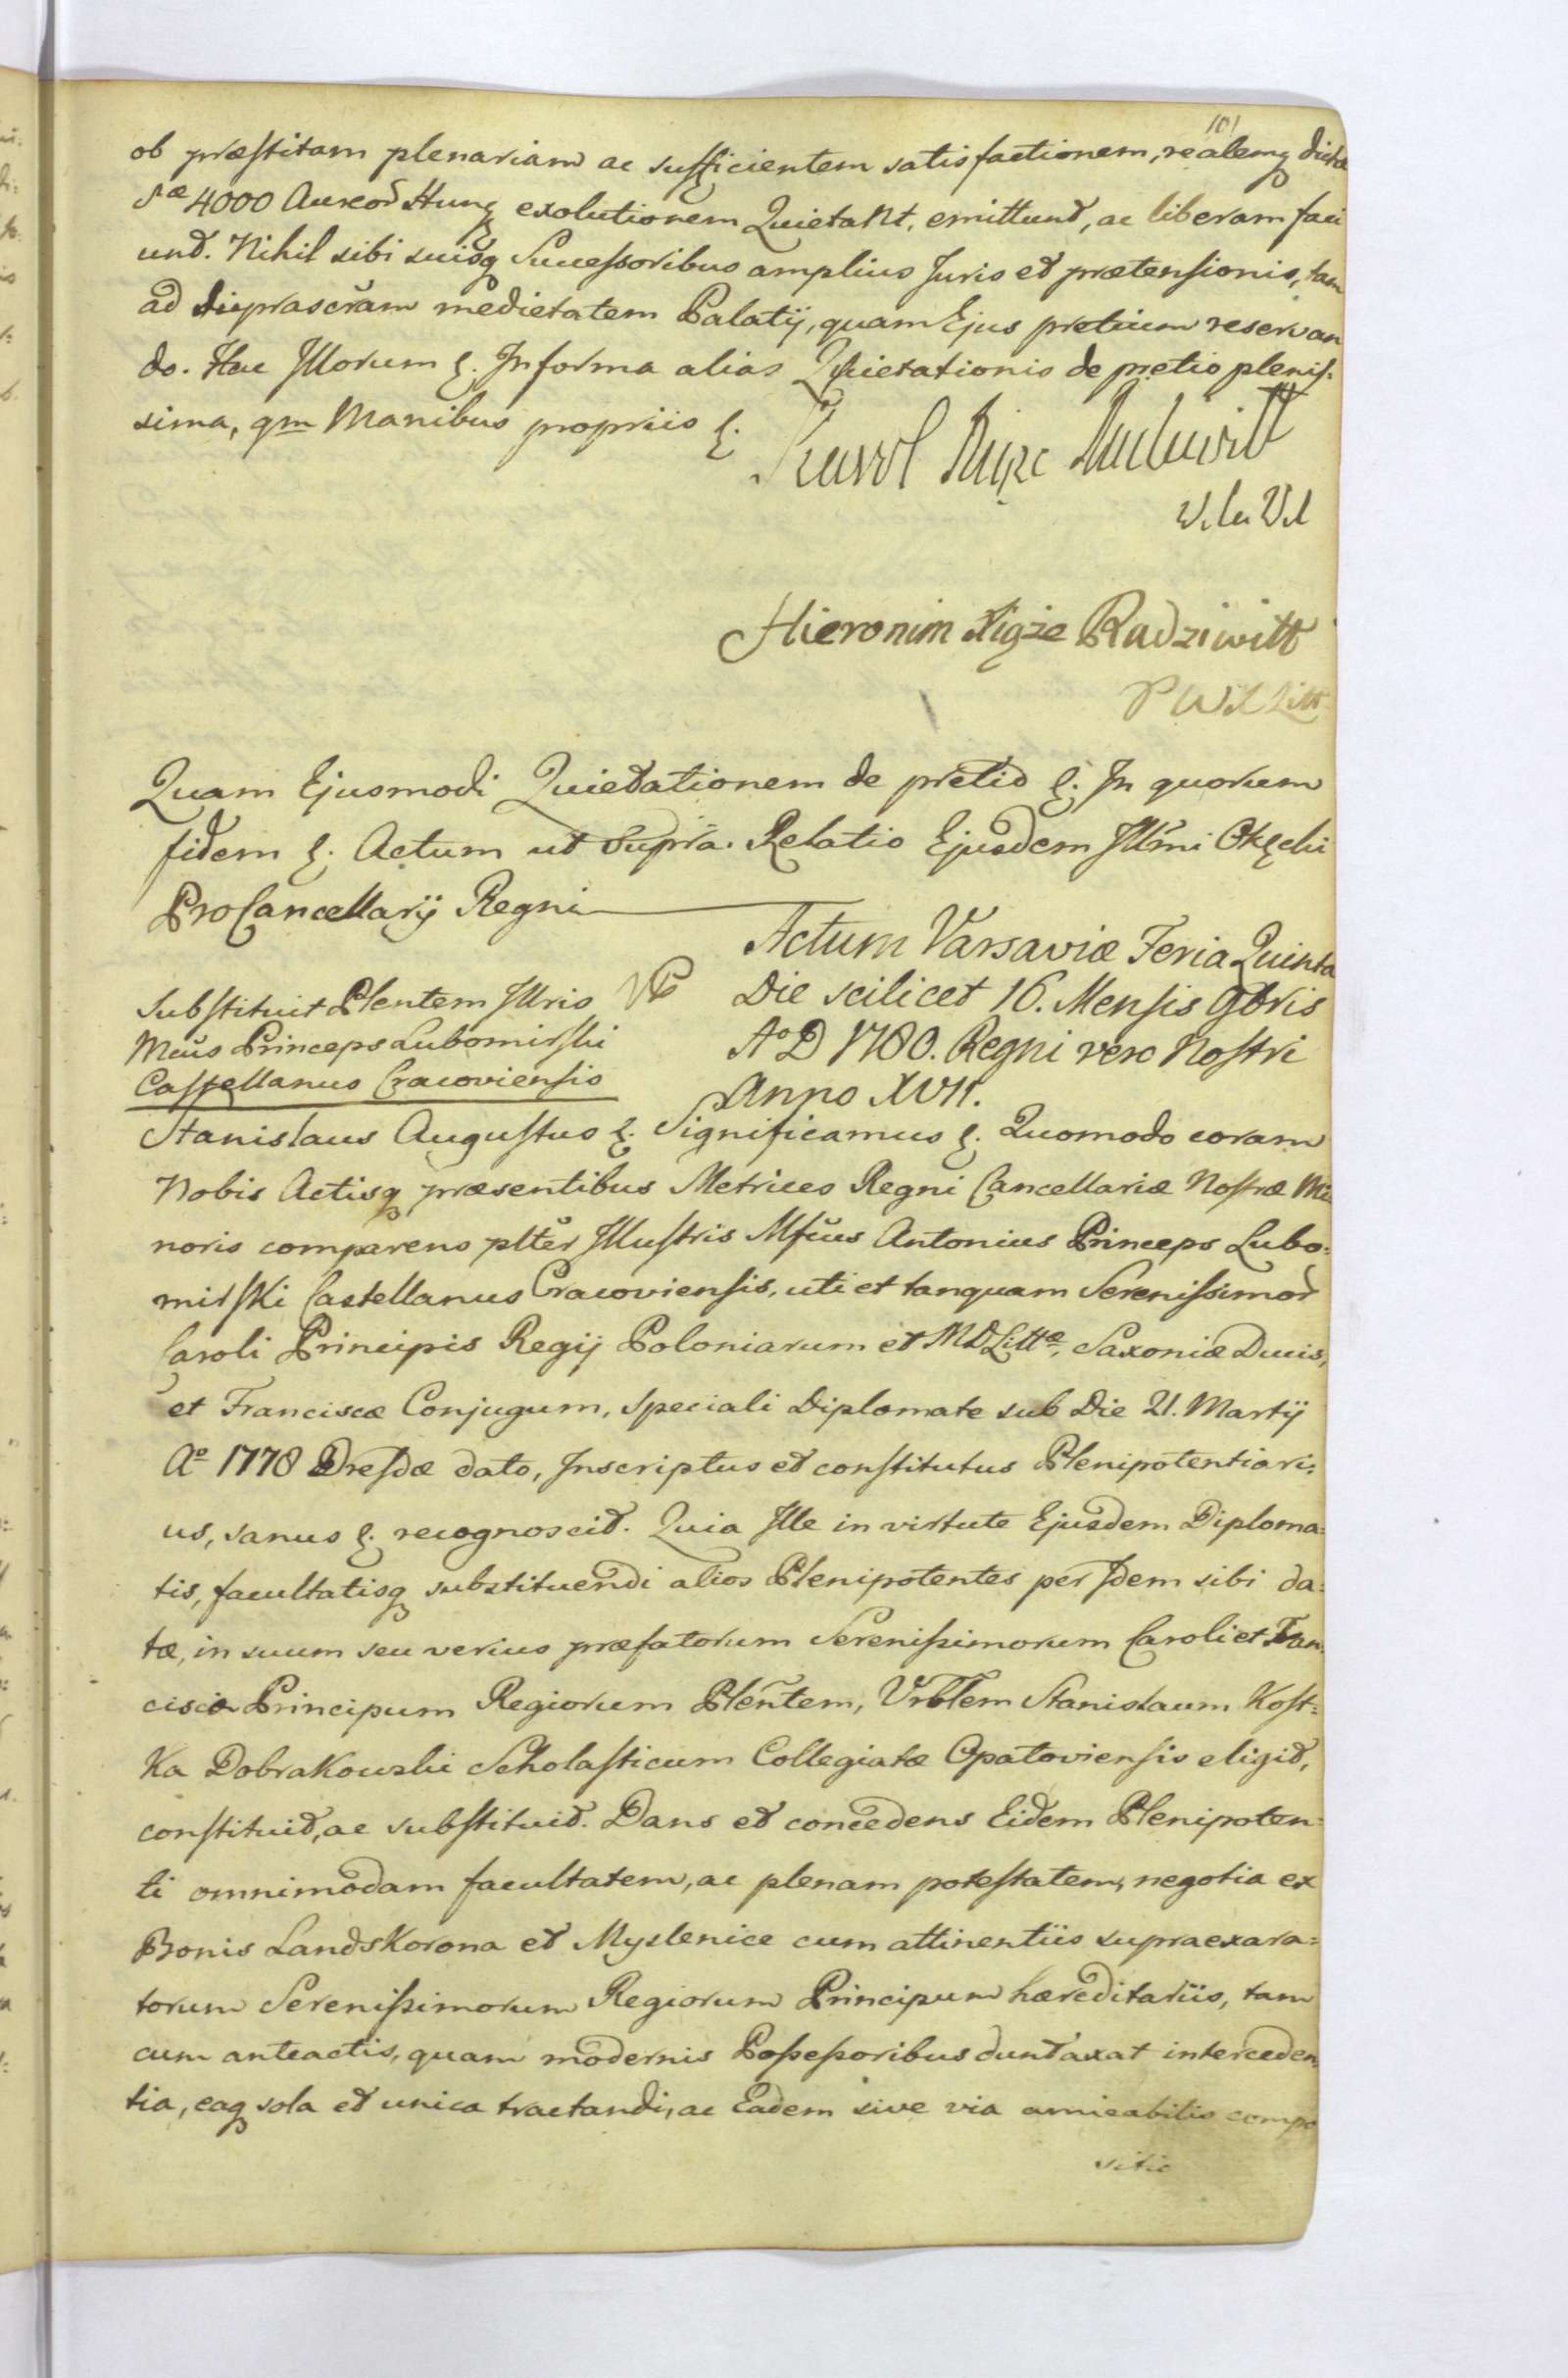 101
ob præstitam plenariam ac sufficientem satisfactionem, realemq dictæ
sæ 4000 Aureor Hung exolutionem Quietant, emittunt, ac liberam faci
unt. Nihil sibi suisq Successoribus amplius Juris et prætensionis, tam
ad suprascram medietatem Palatij, quam Ejus pretium reservan
do. Hac Illorum &. In forma alias Quietationis de pretio plenis:
sima, qm Manibus propriis &.
Karol Xiąże Radziwiłł
Hieronim Xiąże Radziwiłł
P W X Litt
Quam Ejusmodi Quietationem de pretio &. In quorum
fidem &. Actum ut Supra. Relatio Ejusdem Illmi Okęcki
ProCancellarij Regni
Actum Varsaviæ Feria Quinta
Die scilicet 16. Mensis 9bris
Ao D 1780. Regni vero Nostri
Anno XVII.
Substituit Plentem Illris
Mcus Princeps Lubomirski
Castellanus Cracoviensis
Stanislaus Augustus &. Significamus &. Quomodo coram
Nobis Actisq præsentibus Metrices Regni Cancellariæ Nostræ Mi
noris comparens plter Illustris Mfcus Antonius Princeps Lubo:
mirski Castellanus Cracoviensis, uti et tanquam Serenissimor
Caroli Principis Regij Poloniarum et MDLittæ, Saxoniæ Ducis,
et Franciscæ Conjugum, speciali Diplomate sub Die 21. Martij
Ao 1778 Dresdæ dato, Inscriptus et constitutus Plenipotentiari:
us, sanus &. recognoscit. Quia Ille in virtute Ejusdem Diploma:
tis, facultatisq substituendi alios Plenipotentes per Idem sibi da:
tæ, in suum seu verius præfatorum Serenissimorum Caroli et Fran
ciscæ Principum Regiorum Plentem, Vrblem Stanislaum Kost:
ka Dobrakowski Scholasticum Collegiatæ Opatoviensis eligit,
constituit, ac substituit. Dans et concedens Eidem Plenipoten:
ti omnimodam facultatem, ac plenam potestatem, negotia ex
Bonis Landskorona et Myslenice cum attinentiis supraexara:
torum Serenissimorum Regiorum Principum hæreditariis, tam
cum anteactis, quam modernis Possessoribus duntaxat interceden
tia, eaq sola et unica tractandi, ac Eadem sive via amicabilis compo
sitio